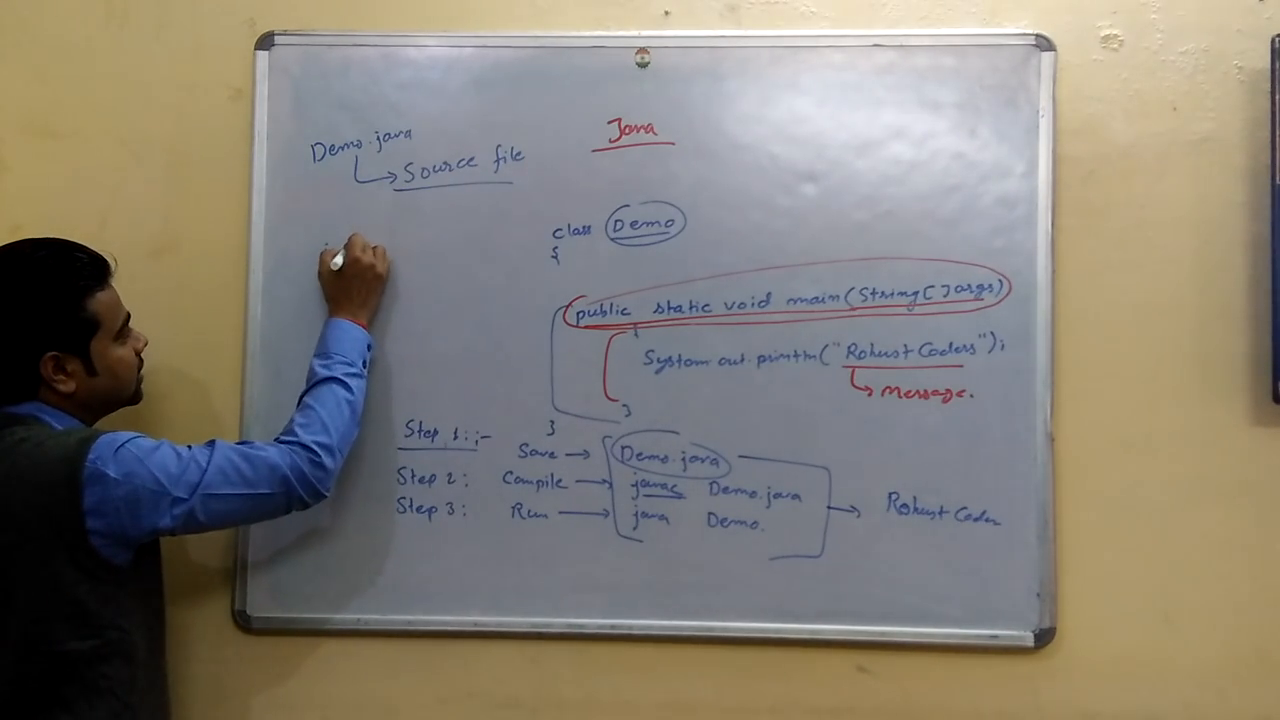 Java
Demo.java
Source file
class Demo
{
public static void main(String[] args)
{
System.out.println("Robust Coders");
message.
}
}
Step 1:;- Save → Demo.java
Step 2: Compile → javac Demo.java
Step 3: Run → java Demo.
→ Robust Coder